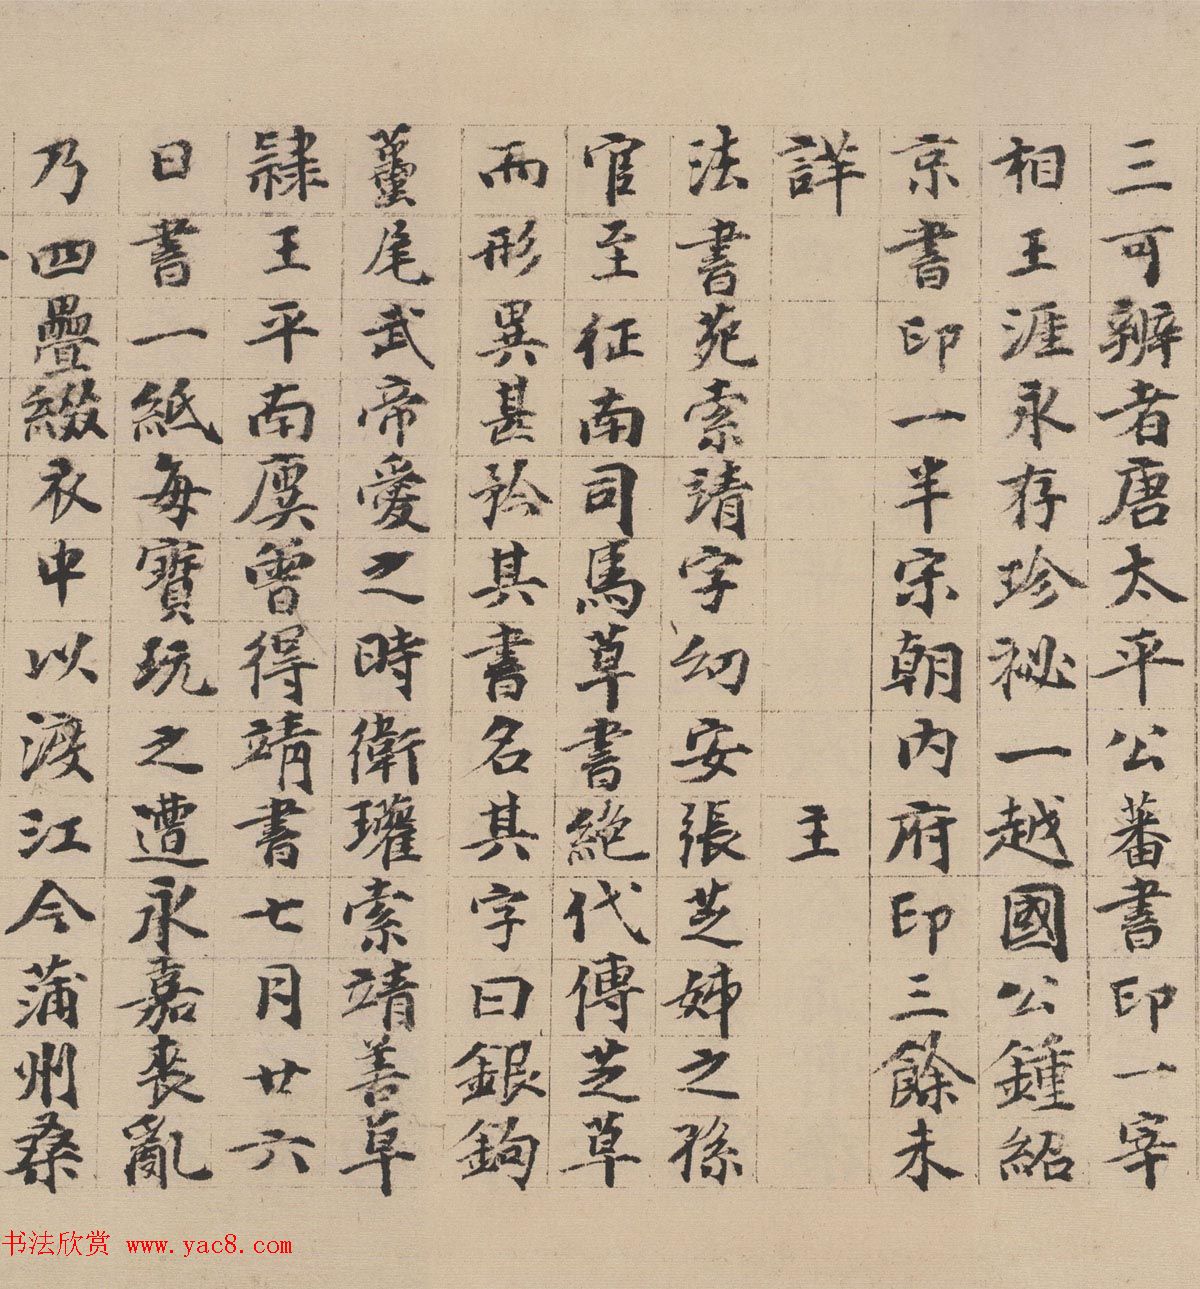 三可辨者唐太平公蕃書印一宰
相王涯永存珍祕一越國公鍾紹
京書印一半宋朝內府印三餘未
詳
王
法書苑索靖字幼安張芝姊之孫
官至征南司馬草書絶代傳芝草
而形異甚矜其書名其字曰銀鉤
蠆尾武帝愛之時衛瓘索靖善草
隸王平南廙曾得靖書七月廿六
日書一紙每寶玩之遭永嘉喪亂
乃四疊綴衣中以渡江今蒲州桑
书法欣赏 www.yac8.com